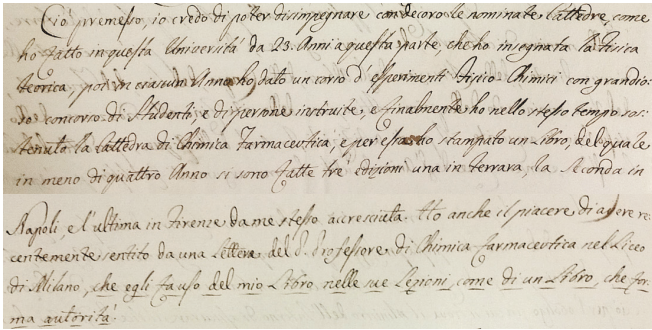 Ciò premesso, io credo di potter disimpegnare con decoro le nominate Cattedre, come
ho fatto in questa Università da 23. Anni a questa parte, che ho insegnata la Fisica
teorica, poi in ciascun Anno ho dato un corso d'esperimenti Fisico-Chimici con grandio-
so concorso di Studenti, e di persone instruite, e finalmente ho nello stesso tempo sos-
tenuta la Cattedra di Chimica Farmaceutica, e per essa ho stampato un Libro, del quale
in meno di quattro Anno si sono fatte tre edizioni una in Ferrara, la Seconda in
Napoli, e l'ultima in Firenze da me stesso accresciuta. Ho anche il piacere di avere re-
centemente sentito da una Lettera del S. Professore di Chimica farmaceutica nel Liceo
di Milano, che egli fa uso del mio Libro nelle sue Lezioni, come di un Libro, che for-
ma autorità.